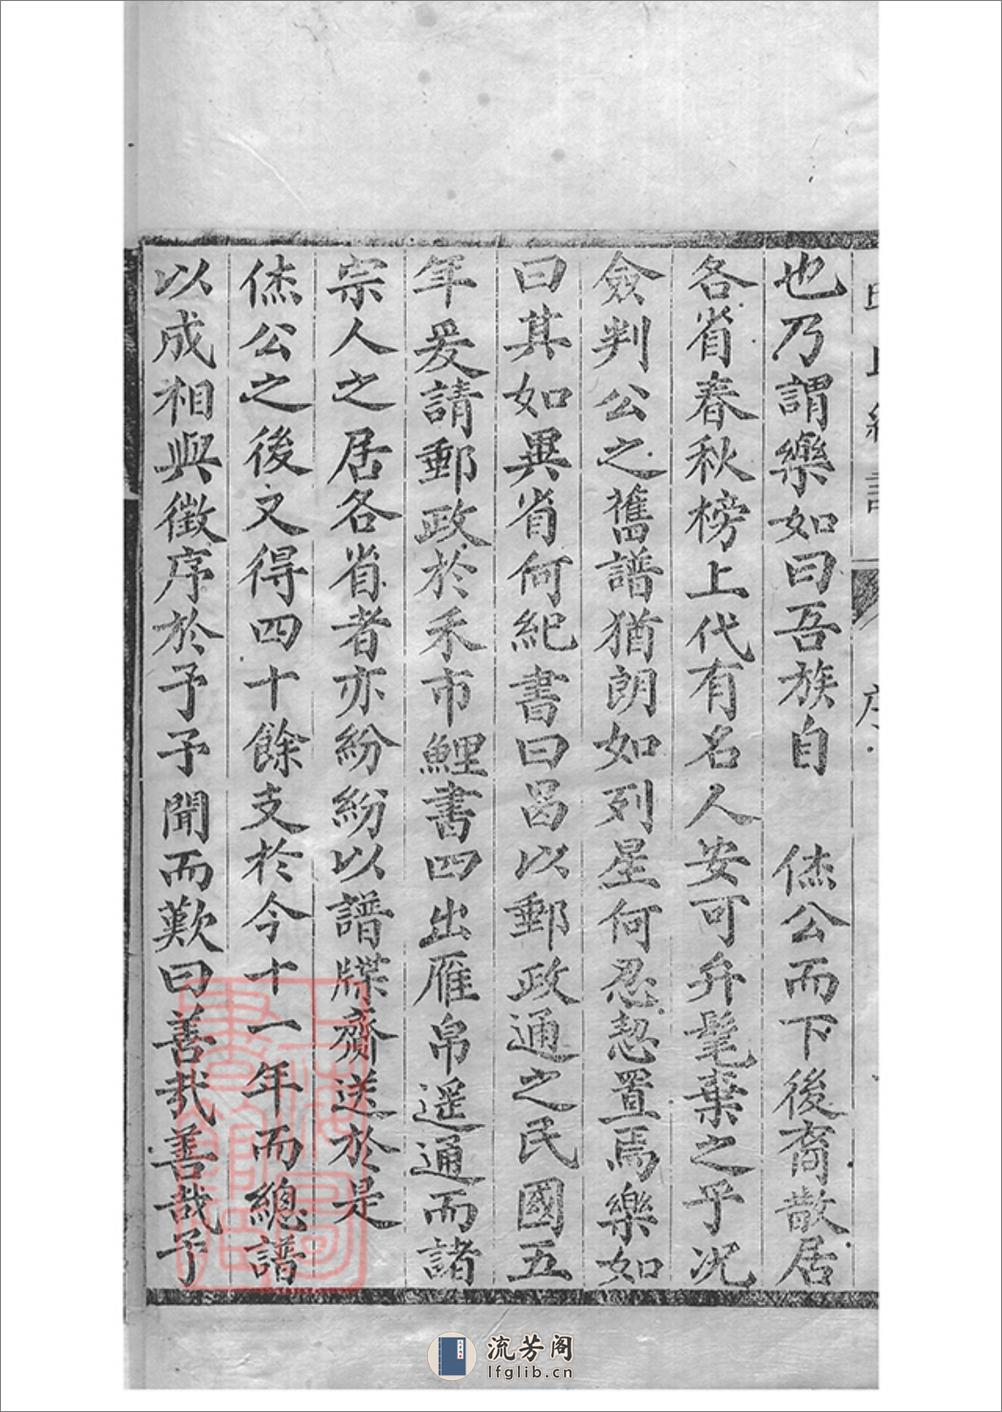 序
也乃謂樂如曰吾族自　烋公而下後裔散居
各省春秋榜上代有名人安可弁髦棄之乎况
僉判公之舊譜猶朗如列星何忍恝置焉樂如
曰其如異省何紀書曰曷以郵政通之民國五
年爰請郵政於禾市鯉書四出雁帛遥通而諸
宗人之居各省者亦紛紛以譜牒齎送於是
烋公之後又得四十餘支於今十一年而總譜
以成相與徵序於予予聞而歎曰善哉善哉予
流芳阁
lfglib.cn